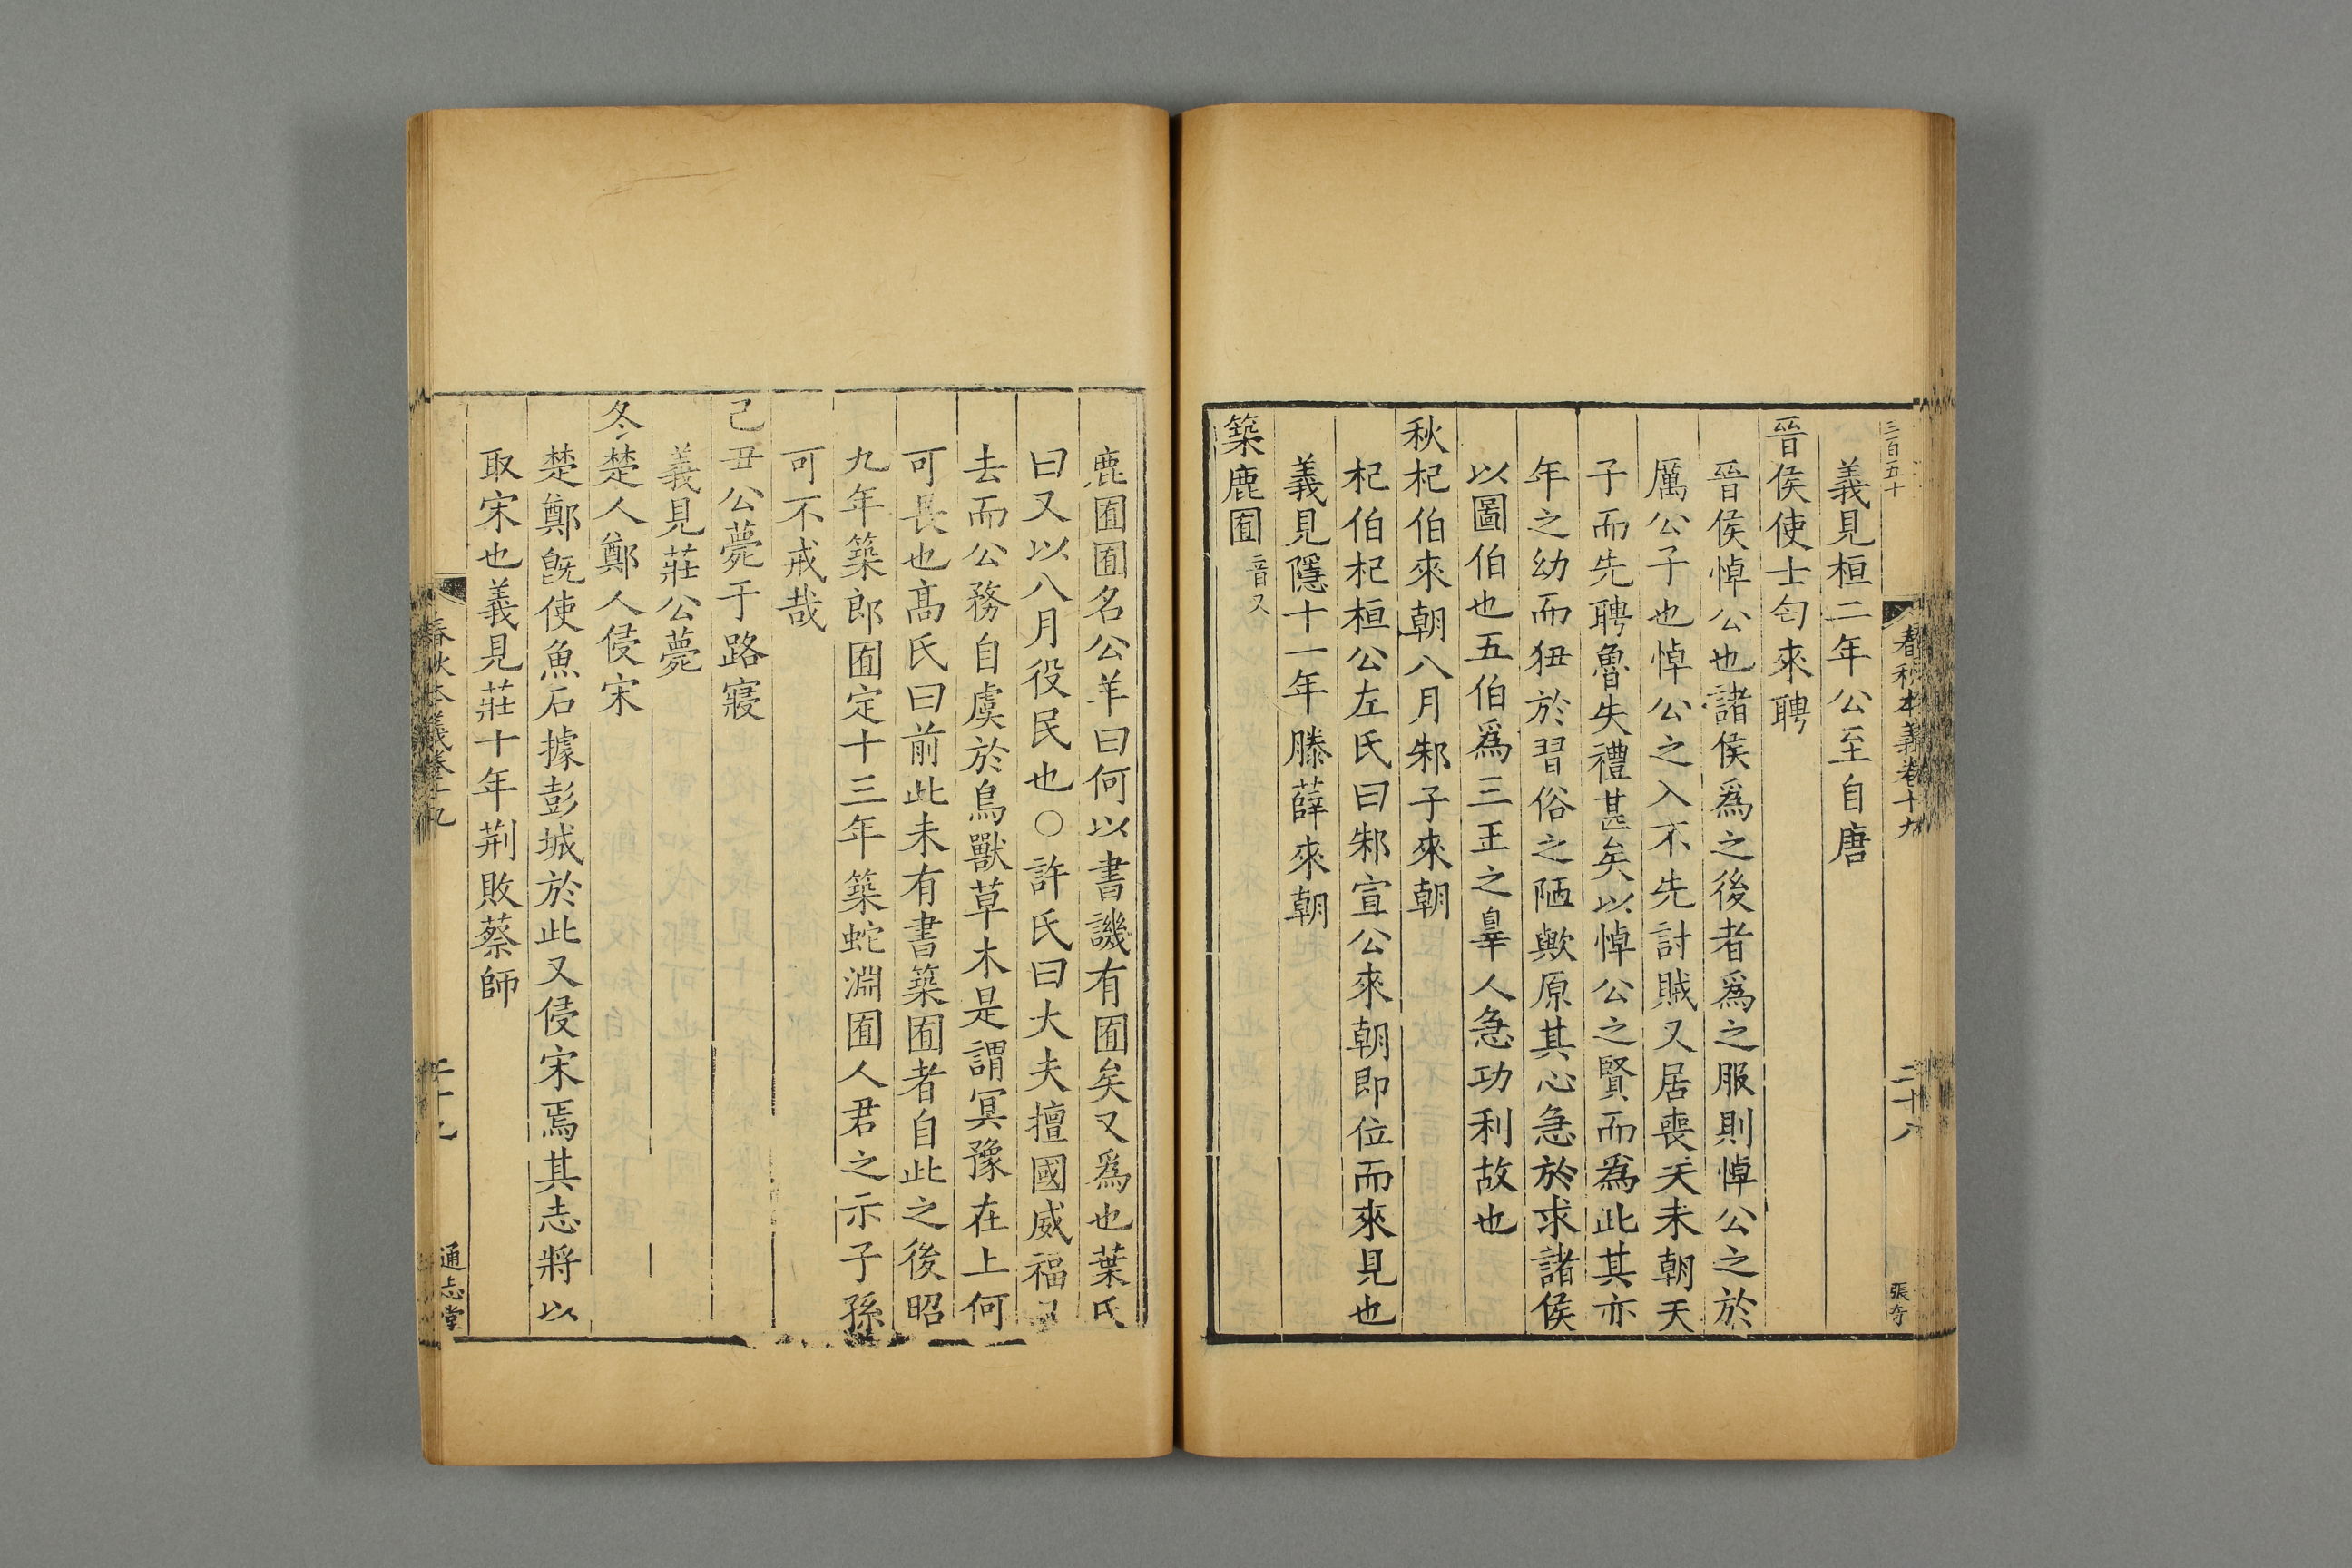 三百五十
春秋本義卷十九
二十八
張奇
義見桓二年公至自唐
晉侯使士匄來聘
晉侯悼公也諸侯爲之後者爲之服則悼公之於
厲公子也悼公之入不先討賊又居喪天未朝天
子而先聘魯失禮甚矣以悼公之賢而爲此其亦
年之幼而狃於習俗之陋歟原其心急於求諸侯
以圖伯也五伯爲三王之辠人急功利故也
秋杞伯來朝八月邾子來朝
杞伯杞桓公左氏曰邾宣公來朝即位而來見也
義見隱十一年滕薛來朝
築鹿囿音又
鹿囿囿名公羊曰何以書譏有囿矣又爲也葉氏
曰又以八月役民也○許氏曰大夫擅國威福
去而公務自虞於鳥獸草木是謂冥豫在上何
可長也髙氏曰前此未有書築囿者自此之後昭
九年築郎囿定十三年築蛇淵囿人君之示子孫
可不戒哉
己丑公薨于路寢
義見莊公薨
冬楚人鄭人侵宋
楚鄭旣使魚石據彭城於此又侵宋焉其志將以
取宋也義見莊十年荆敗蔡師
春秋本義卷十九
二十九
通志堂